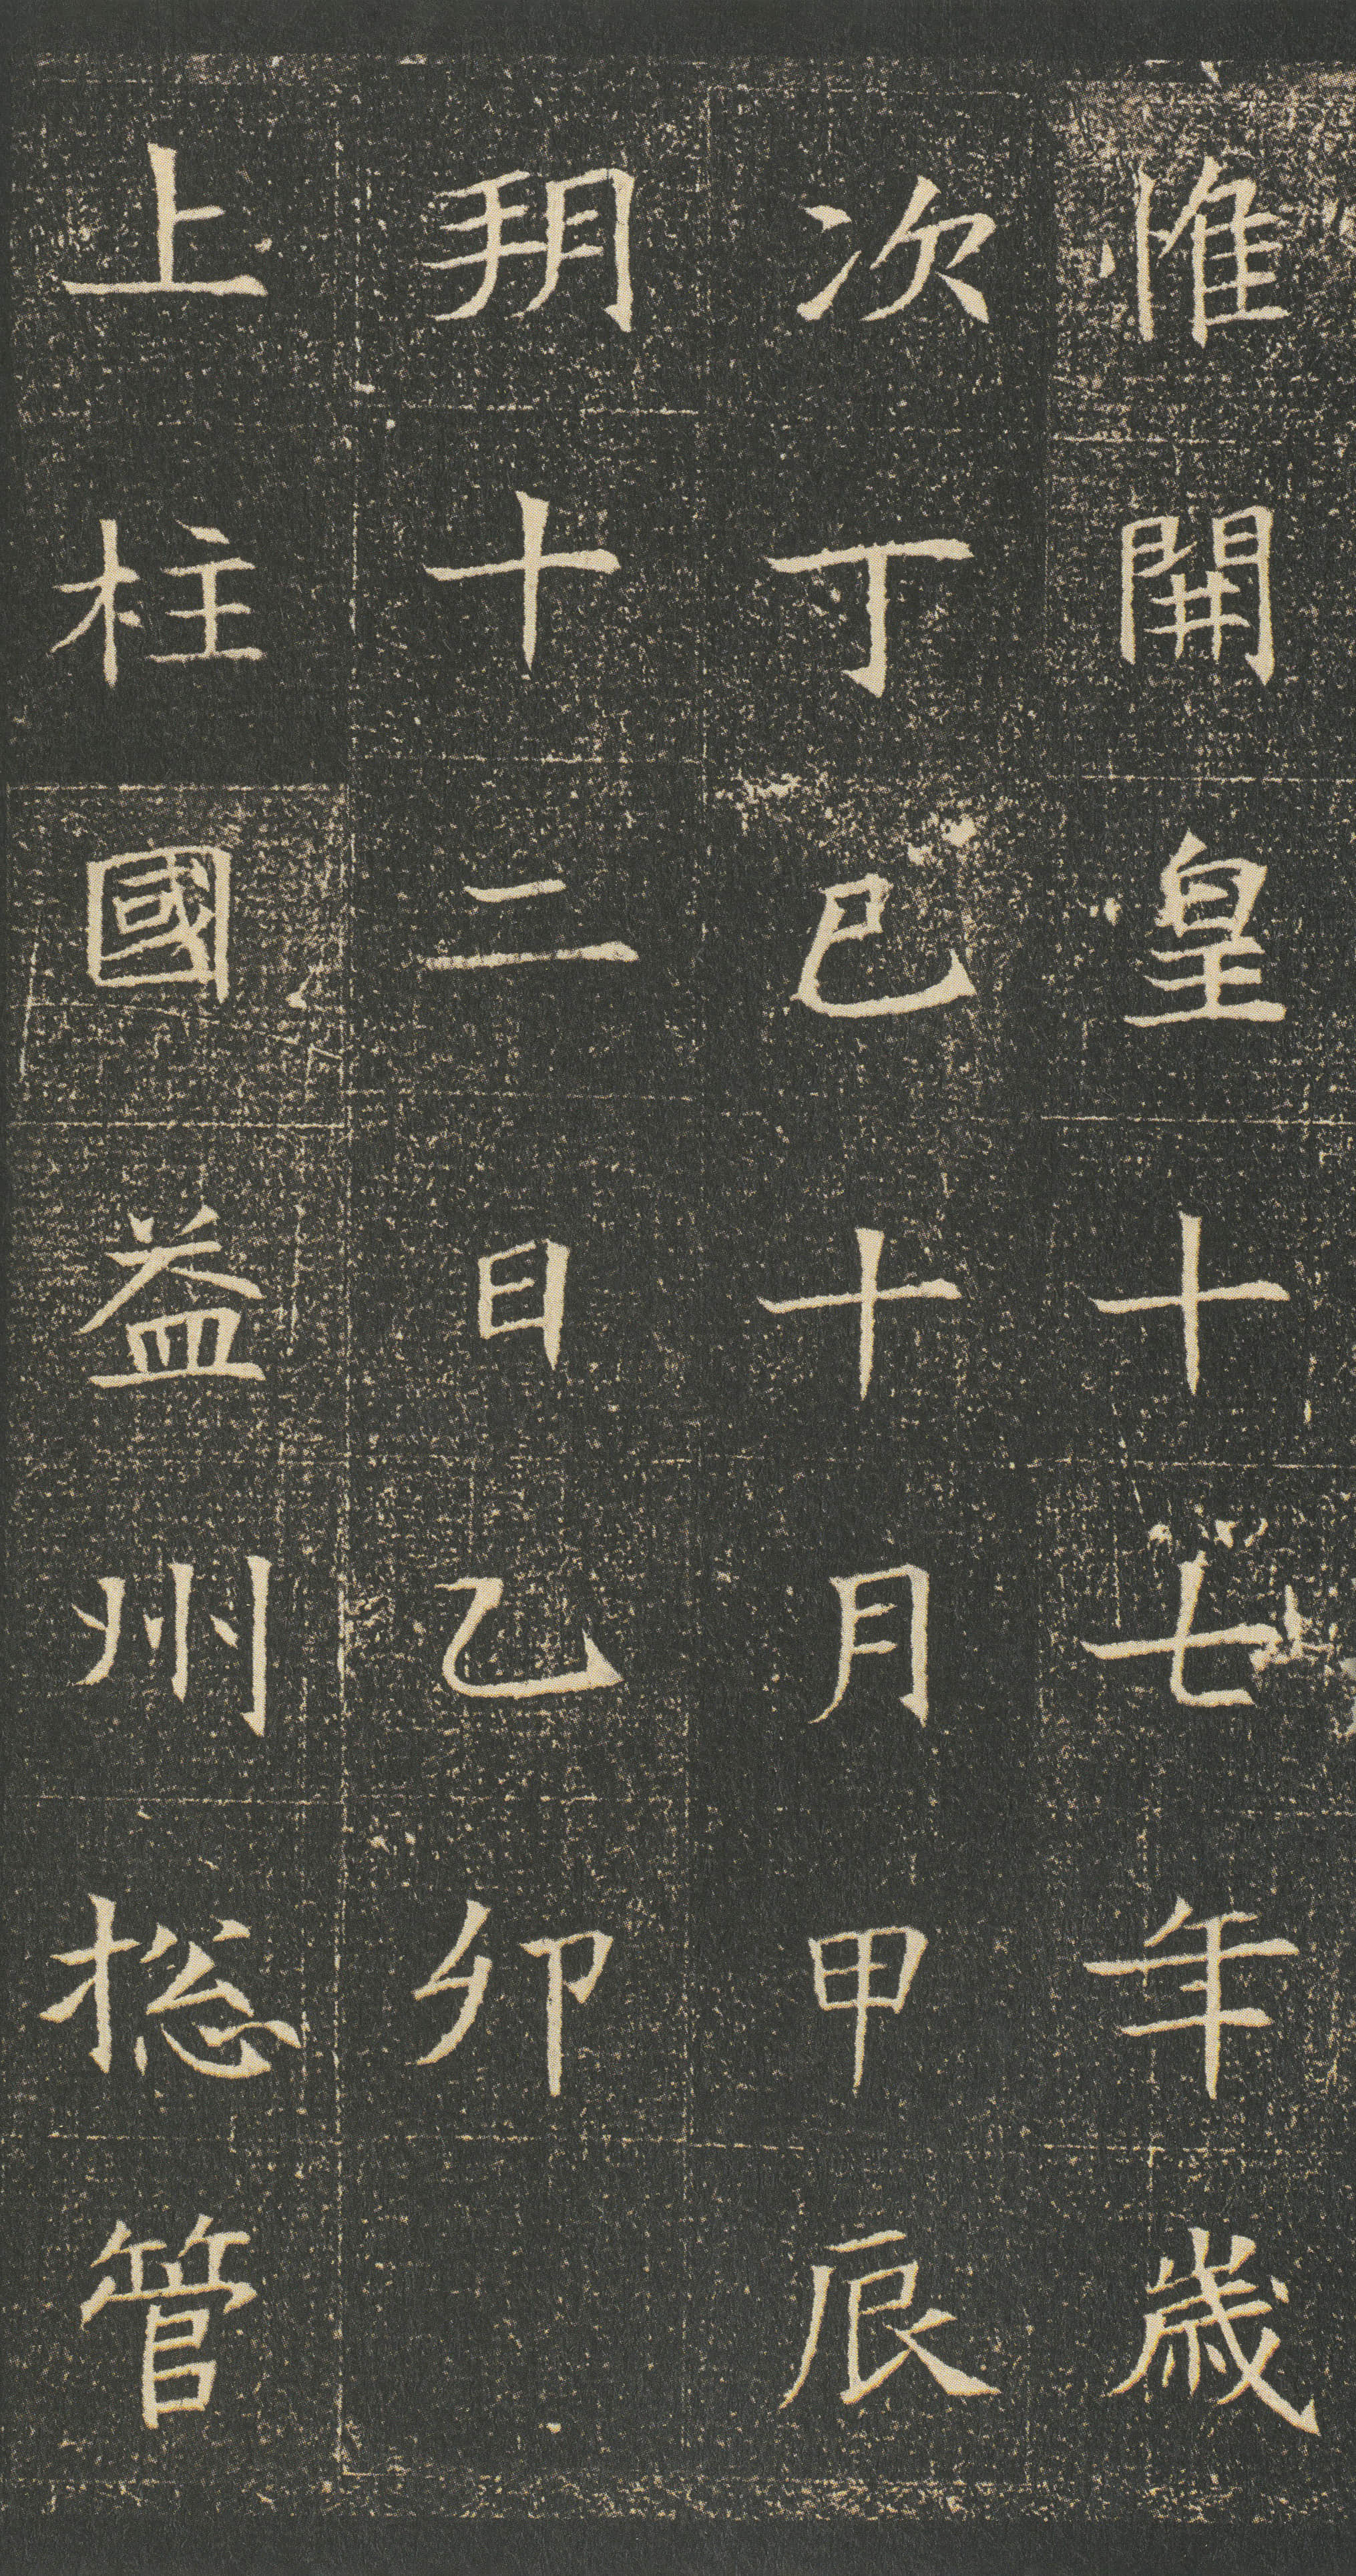 惟開皇十七年歲
次丁巳十月甲辰
朔十二日乙卯
上柱國益州揔管